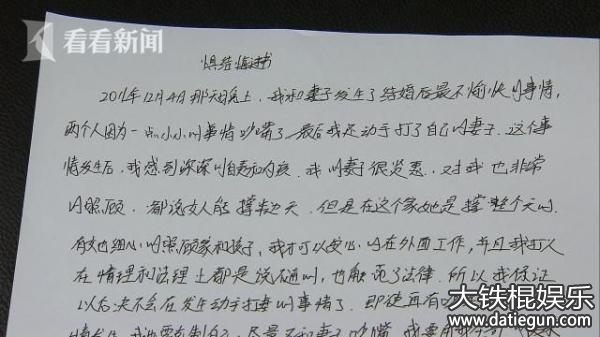 看看新闻
具结悔过书
2011年12月4日那天晚上，我和妻子发生了结婚后最不愉快的事情，
两个人因为一点小小的事情吵嘴了，最后我还动手打了自己的妻子。这个事
情发生后，我感到深深的自责和内疚。我的妻子很贤惠，对我也非常
的照顾，都说女人能撑半边天，但是在这个家她是撑整个天的，
有她细心的照顾家和孩子，我才可以安心的在外面工作，并且我打人
在情理和法理上都是说不通的，也触犯了法律。所以我保证
以后决不会在发生动手打妻的事情了。即使再有
情发生，我也要克制自己，尽量不和妻子吵嘴，我要用
大铁棍娱乐
www.datiegun.com